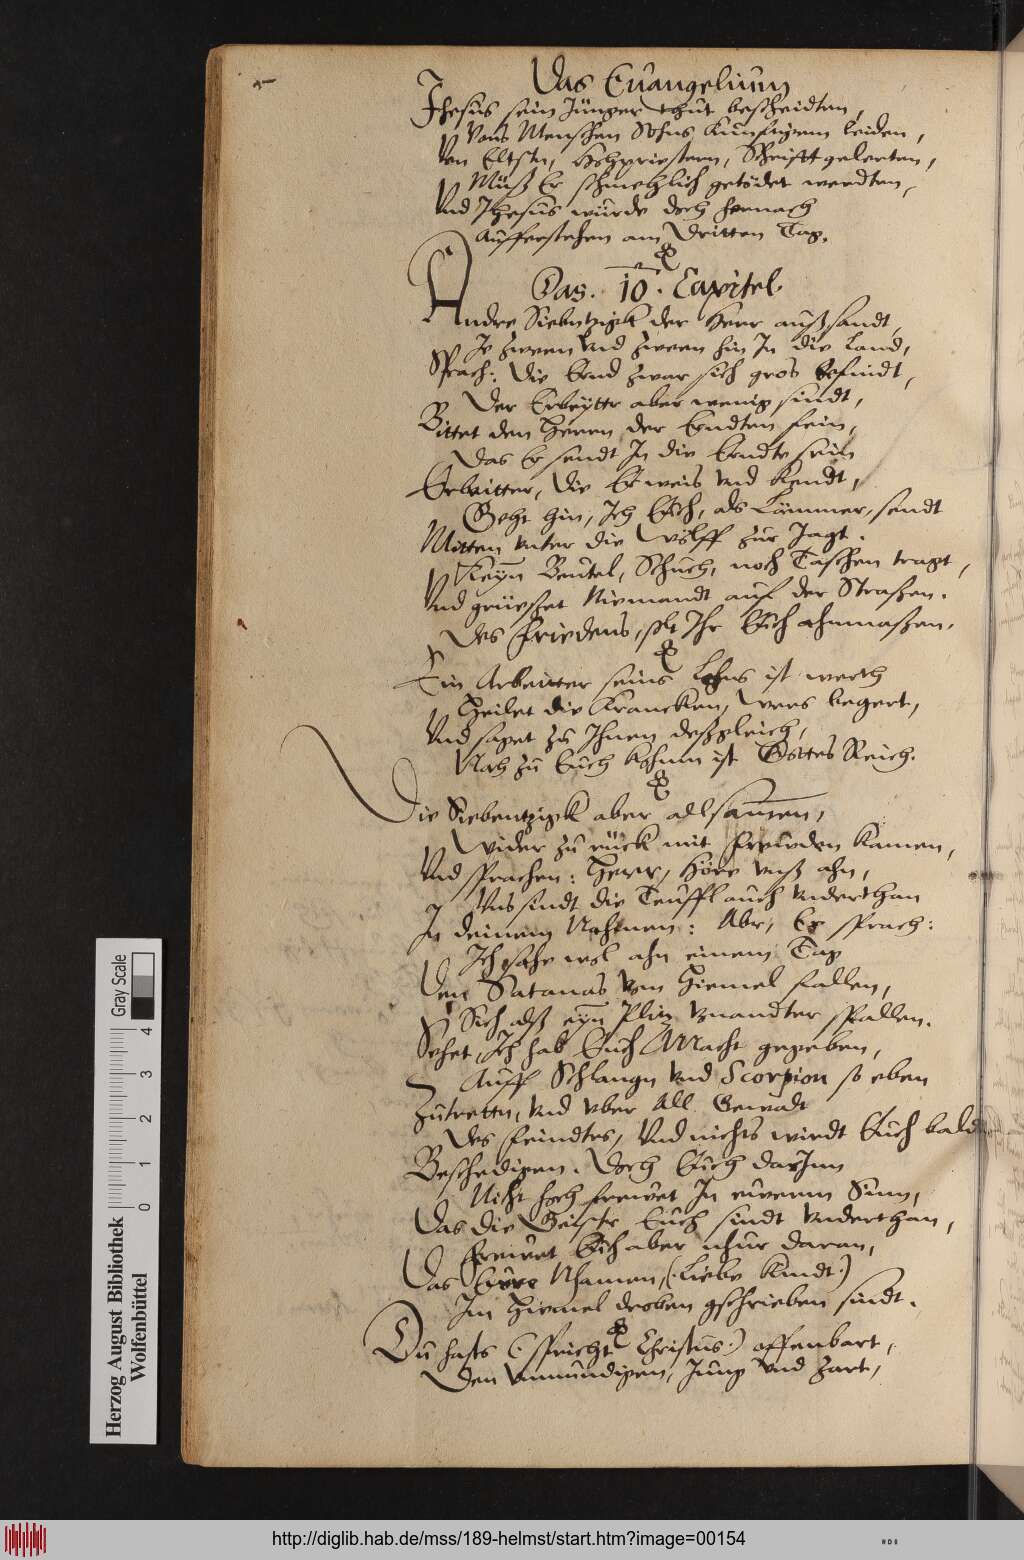 Das Euangelium
Jhesus sein Jünger thut bescheidten,
Vons Menschen Sohns Künfftigem leiden,
Von Eltstn, Hohpriestern, Schrifftgelerten,
Müß Er schmehlich getödet werdten,
Vnd Jhesus würde doch hernach
Aufferstehen am Dritten Tag.
Das. 10. Capitel.
Andre Siebntzigk der Herr außsandt,
Je zween vnd zween hin In die Land,
Sprach: Die Ernd zwar sich gros befindt,
Der Erbeytter aber wenig sindt,
Bittet den Herrn der Erndten fein,
Das Er sendt In die Erndte sein
Erbeitter, die Er weis vnd Kendt,
Geht hin, Ich Eüch, als Lämmer, sendt
Mitten vnter die Wölff zur Jagt.
Keyn Beutel, Schuch, noch Taschen tragt,
Vnd grüesset Niemandt auf der Strassen.
Des friedens, solt Ihr Eüch ahnmassen.
Ein Arbeitter seins Lohns ist werth
Heilet die Krancken, wers begert,
Vnd saget zu Ihnen dessgleich,
Nah zu Euch Kohmn ist Gottes Reich.
Die Siebentzigk aber allsamen,
Wider zu rück mit frewden kamen,
Vnd sprachen: Herr, Höre vnß ahn,
Vns sindt die Teuffl auch vnderthan
In deinem Nahmen: Abr, Er sprach:
Ich sahe wol ahn einem Tag
Den Satanas vom Hiemel fallen,
Sich alß eyn Plitz vnandter schallen.
Sehet, Ich hab Euch Macht gegeben,
Auff Schlangn vnd Scorpion so eben
Zutrettn, vnd vber All Gewalt
Des feindtes, Vnd nichts wirdt Euch bald
Beschedigen. Doch Euch darInn
Nicht hoch frewet In ewerm Sinn,
Das die Geister Euch sindt vnderthan,
Frewet Eüch aber nhur daran,
Das Ewre Nhamen, (:Liebe Kindt:)
Im Hiemel droben gschrieben sindt.
Du hasts (:spricht Christus:) offenbart,
Den vnmündigen, Jung vnd Zart,
Herzog August Bibliothek
Wolfenbüttel
0 1 2 3 4
Gray Scale
http://diglib.hab.de/mss/189-helmst/start.htm?image=00154